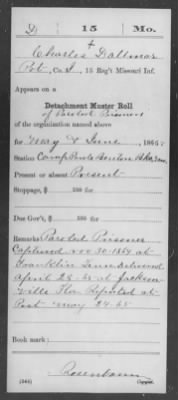 D 15 Mo.
Charles Dallmar
Pvt, Co. I, 15 Reg't Missouri Inf.
Appears on a
Detachment Muster Roll
of Paroled Prisoners
of the organization named above
for May & June, 1865.
Station Camp Benton Bks, Mo
Present or absent Present
Stoppage, $ 100 for
Due Gov't, $ 100 for
Remarks: Paroled Prisoner
Captured Nov 30 1864 at
Franklin Tenn delivered
April 28-65 at Jackson-
ville Fla. Reported at
Post May 24-65
Book mark:
Rosenbaum
(345) Copyist.